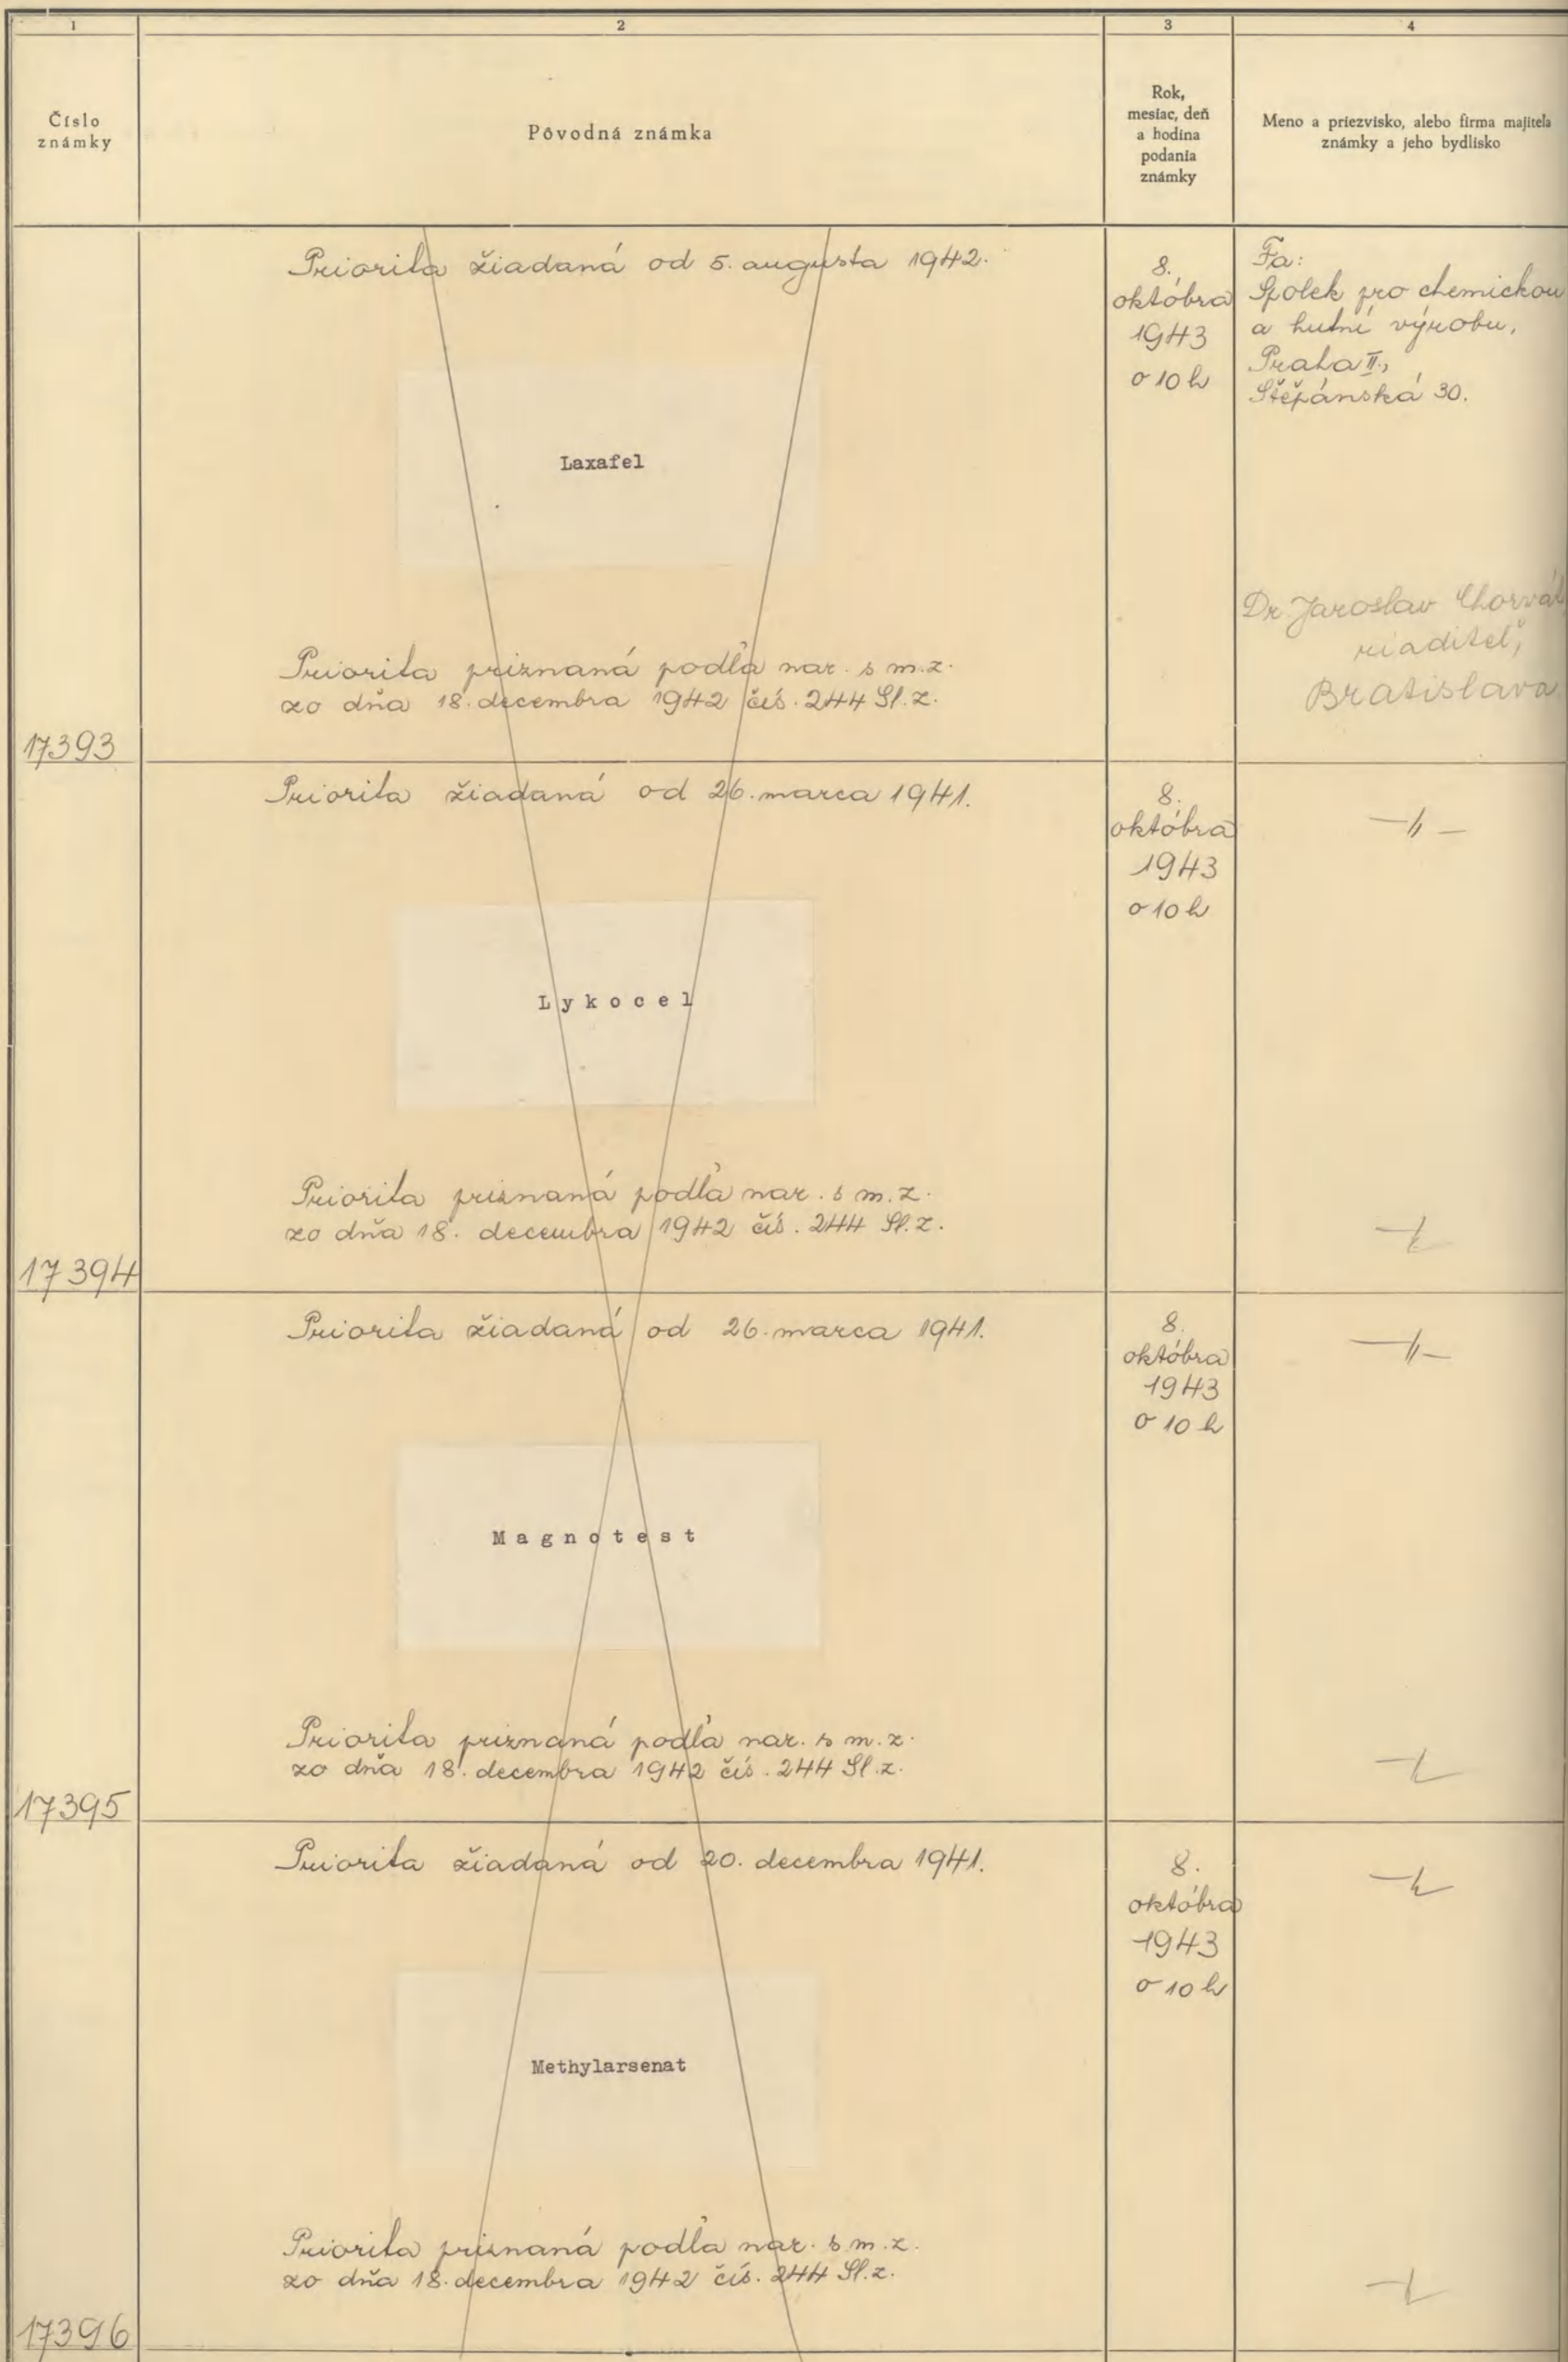 1
2
3
4
Číslo
známky
Pôvodná známka
Rok,
mesiac, deň
a hodina
podania
známky
Meno a priezvisko, alebo firma majiteľa
známky a jeho bydlisko
Priorita žiadaná od 5. augusta 1942.
Laxafel
Priorita priznaná podľa nar. s m. z.
zo dňa 18. decembra 1942 čís. 244 Sl. z.
17393
8.
októbra
1943
o 10 h
Fa:
Spolek pro chemickou
a hutní výrobu,
Praha II.,
Štěpánská 30.
Dr. Jaroslav
riaditeľ,
Bratislava
Priorita žiadaná od 26. marca 1941.
Lykocel
Priorita priznaná podľa nar. s m. z.
zo dňa 18. decembra 1942 čís. 244 Sl. z.
17394
8.
októbra
1943
o 10 h
—〃—
—〃—
Priorita žiadaná od 26. marca 1941.
Magnotest
Priorita priznaná podľa nar. s m. z.
zo dňa 18. decembra 1942 čís. 244 Sl. z.
17395
8.
októbra
1943
o 10 h
—〃—
—〃—
Priorita žiadaná od 20. decembra 1941.
Methylarsenat
Priorita priznaná podľa nar. s m. z.
zo dňa 18. decembra 1942 čís. 244 Sl. z.
17396
8.
októbra
1943
o 10 h
—〃—
—〃—